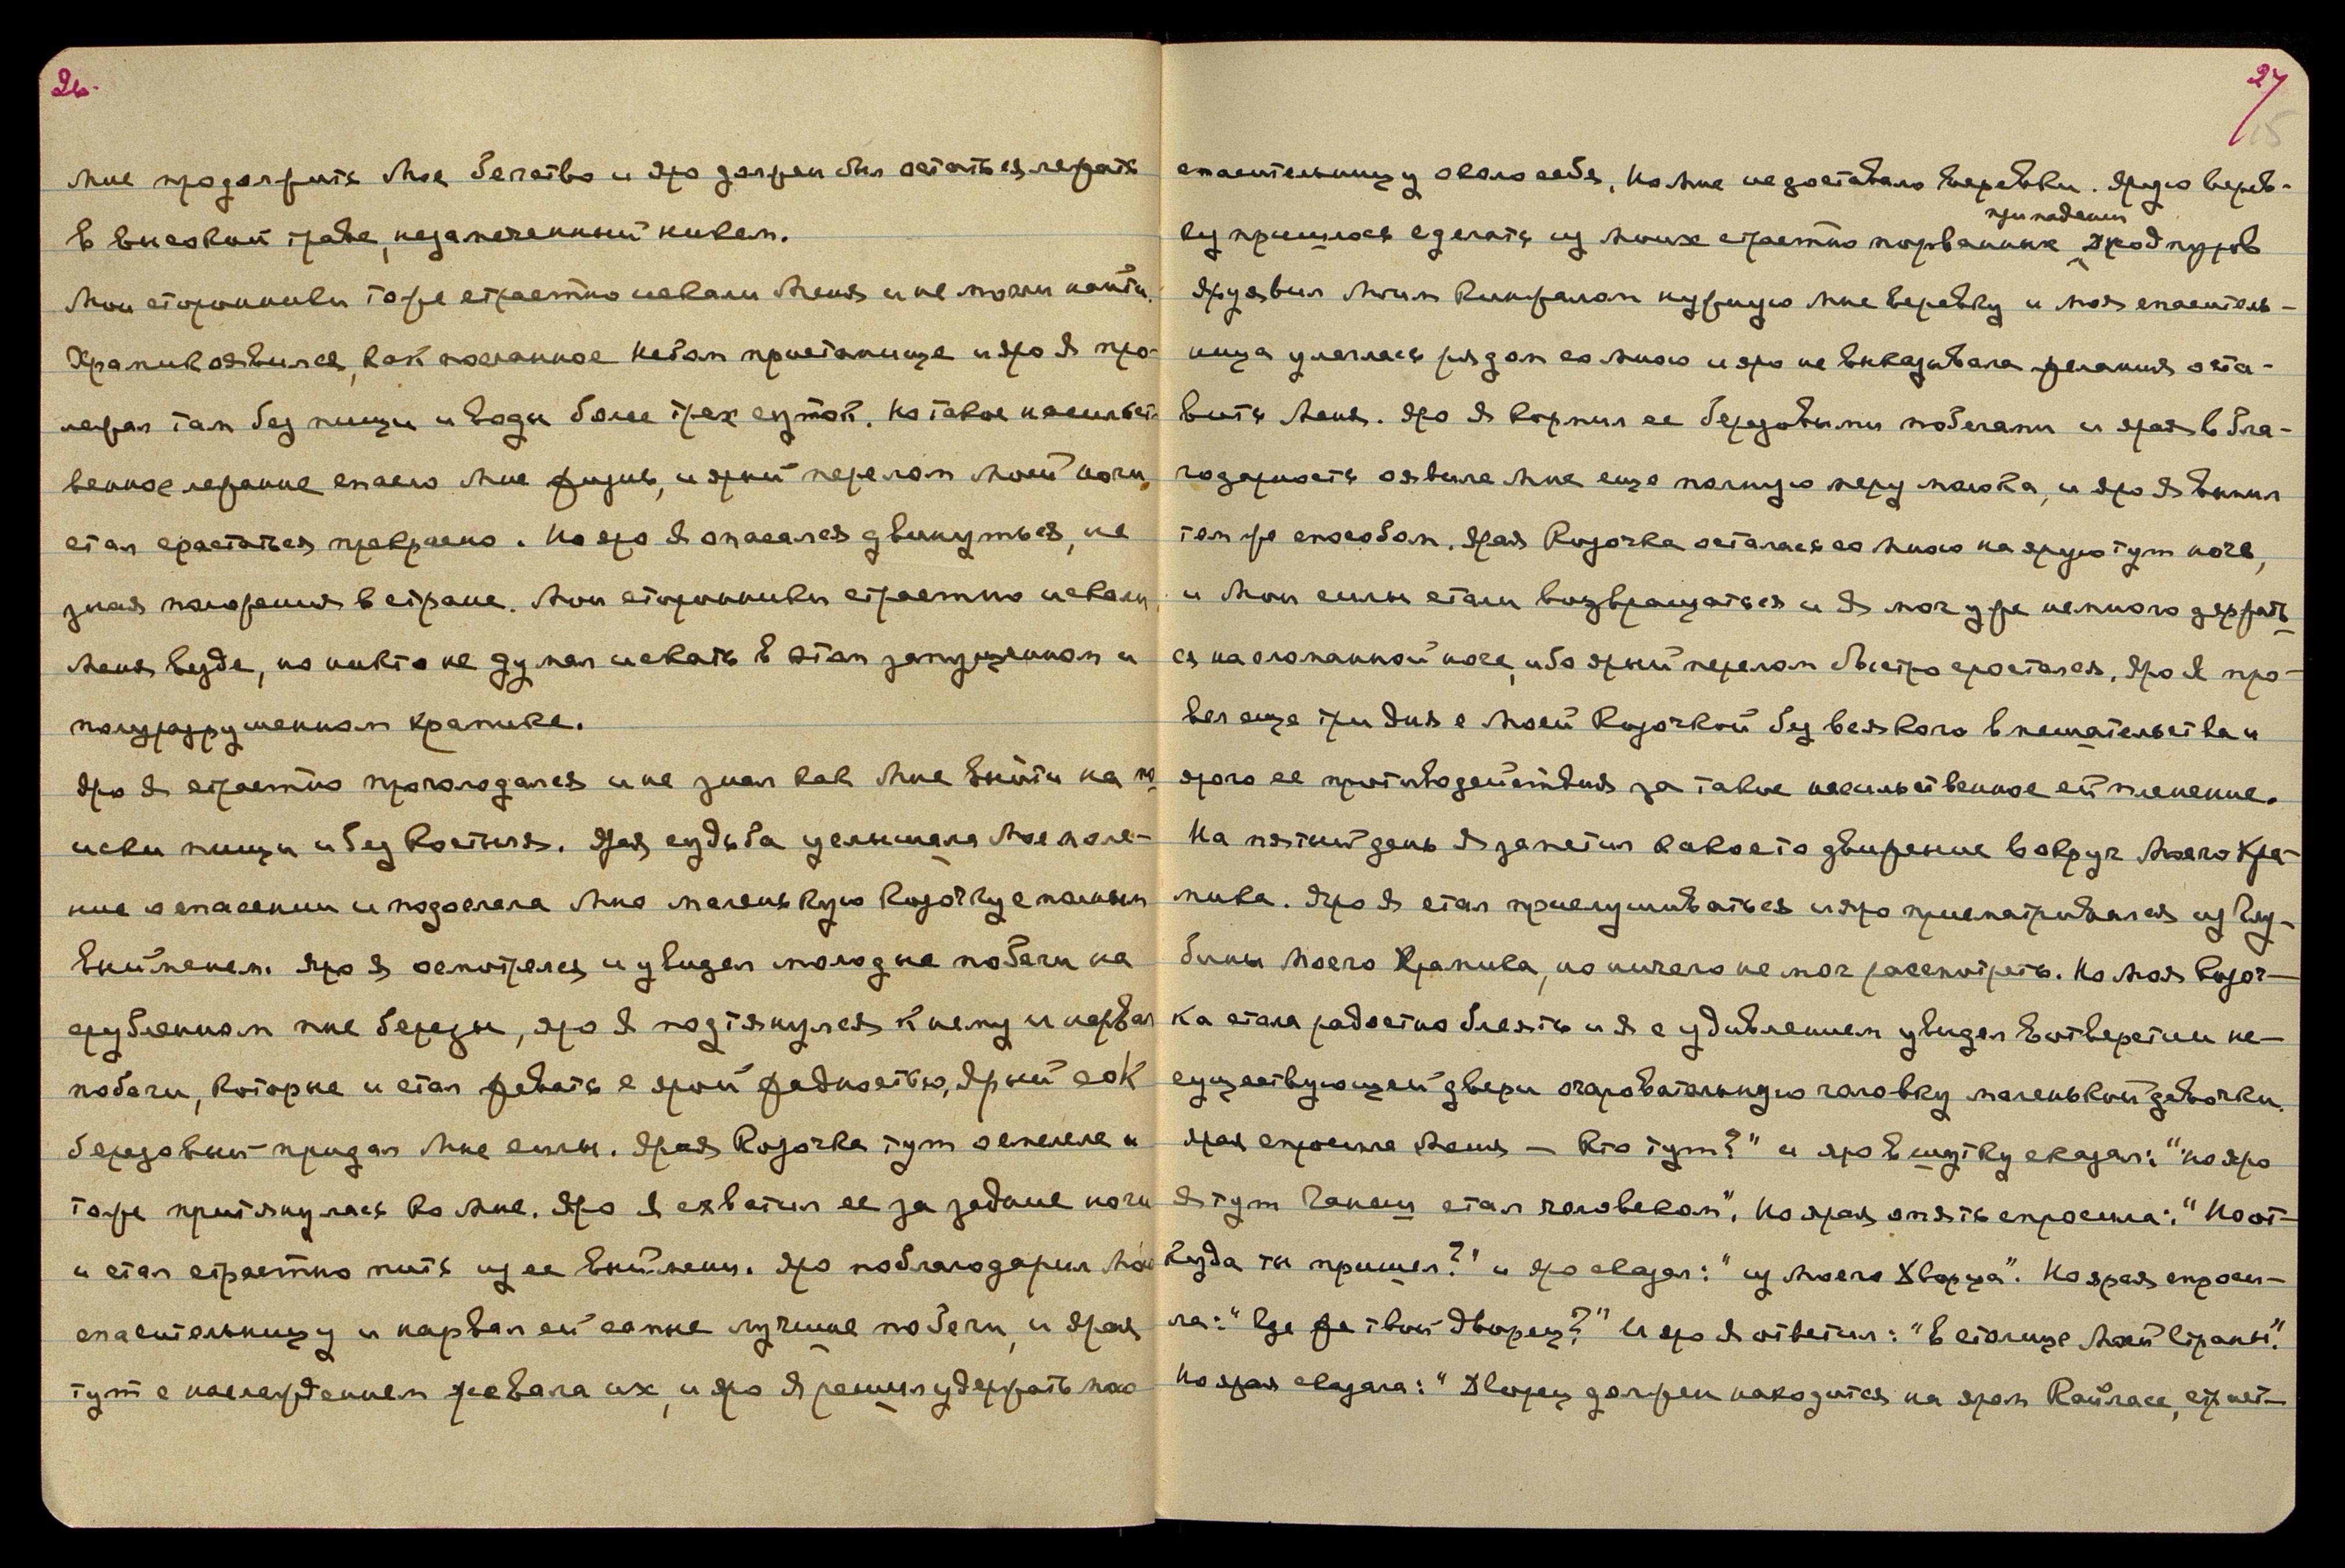 26.
Мне продолжить Мое бегство и яро должен был остаться лежать
в высокой траве, незамеченный никем.
Мои сторонники тоже страстно искали Меня и не могли найти.
Храмик оявился, как посланное Небом пристанище и яро Я про-
лежал там без пищи и воды более трех суток. Но такое насильст-
венное лежание спасло Мне жизнь, и ярый перелом Моей ноги
стал срастаться прекрасно. Но яро Я опасался двинуться, не
зная положения в стране. Мои сторонники страстно искали
Меня везде, но никто не думал искать в этом запущенном и
полуразрушенном храмике.
Яро Я страстно проголодался и не знал как Мне выйти на по
иски пищи и без костыля. Ярая судьба услышала Мое моле-
ние о спасении и подослала Мне маленькую козочку с полным
выйменем. Яро Я осмотрелся и увидел молодые побеги на
срубленном пне березы, яро Я подтянулся к нему и нарвал
побеги, которые и стал жевать с ярой жадностью, ярый сок
березовый придал Мне силы. Ярая козочка тут осмелела и
тоже притянулась ко Мне. Яро Я схватил ее за задние ноги
и стал страстно пить из ее выймени. Яро поблагодарил Мою
спасительницу и нарвал ей самые лучшие побеги, и ярая
тут с наслаждением жевала их, и яро Я решил удержать мою
27
15
спасительницу около себя, но Мне недоставало веревки. Ярую верев-
при падении
ку пришлось сделать из Моих страстно порванных ярод пузров
Яру явил Моим кинжалом нужную Мне веревку и Моя спаситель-
ница улеглась рядом со Мною и яро не выказывала желания оста-
вить Меня. Яро Я кормил ее березовыми побегами и ярая в бла-
годарность оявила Мне еще полную меру молока, и яро Я выпил
тем же способом. Ярая козочка осталась со Мною на ярую тут ночь,
и Мои силы стали возвращаться и Я мог уже немного держать
ся на сломанной ноге, ибо ярый перелом быстро сростался. Яро Я про-
вел еще три дня с Моей козочкой без всякого вмешательства и
ярого ее противодействия за такое насильственное ей пленение.
На пятый день Я заметил какое то движение вокруг Моего Хра-
мика. Яро Я стал прислушиваться и яро присматривался из глу-
бины Моего Храмика, но ничего не мог рассмотреть. Но Моя козоч-
ка стала радостно блеять и Я с удивлением увидел в отверстии не-
существующей двери очаровательную головку маленькой девочки.
Ярая спросила Меня – кто тут?" и яро в шутку сказал: "но яро
Я тут Ганеш стал человеком". Но ярая опять спросила: "Но от-
куда ты пришел?" и яро сказал: "из Моего Дворца". Но ярая спроси-
ла: "где же твой Дворец?" И яро Я ответил: "в столице Моей Страны".
Но ярая сказала: "Дворец должен находится на яром Кайласе, страст-